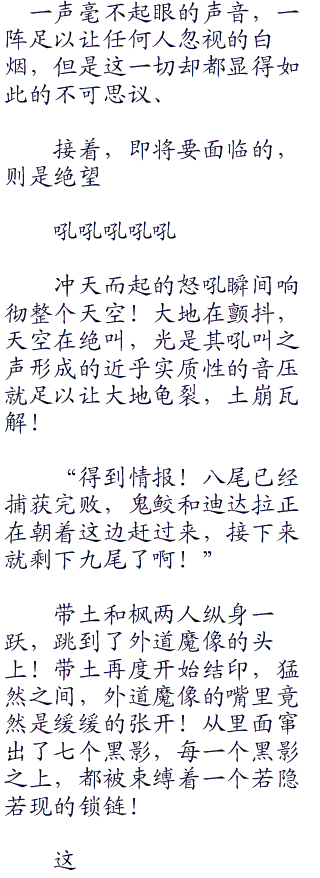 一声毫不起眼的声音，一
阵足以让任何人忽视的白
烟，但是这一切却都显得如
此的不可思议、
接着，即将要面临的，
则是绝望
吼吼吼吼吼
冲天而起的怒吼瞬间响
彻整个天空！大地在颤抖，
天空在绝叫，光是其吼叫之
声形成的近乎实质性的音压
就足以让大地龟裂，土崩瓦
解！
“得到情报！八尾已经
捕获完败，鬼鲛和迪达拉正
在朝着这边赶过来，接下来
就剩下九尾了啊！”
带土和枫两人纵身一
跃，跳到了外道魔像的头
上！带土再度开始结印，猛
然之间，外道魔像的嘴里竟
然是缓缓的张开！从里面窜
出了七个黑影，每一个黑影
之上，都被束缚着一个若隐
若现的锁链！
这